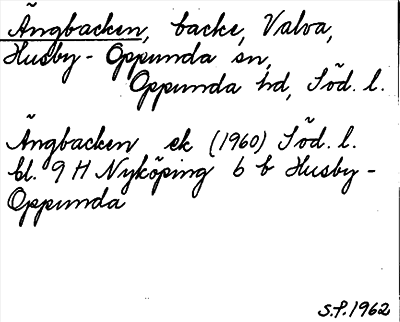 Ängbacken, backe, Valva,
Husby-Oppunda sn,
Oppunda hd, Söd. l.
Ängbacken ek (1960) Söd. l.
bl. 9 H Nyköping 6 b Husby-
Oppunda
S.P. 1962